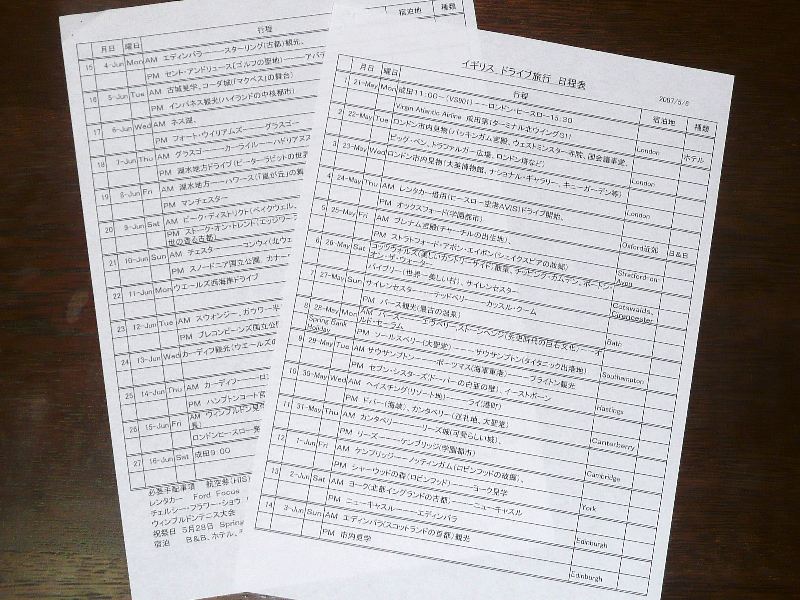 イギリス ドライブ旅行 日程表
2007/5/6
月日 曜日 行程 宿泊地 種類
1 21-May Mon 成田11:00-(VS901)--ロンドン・ヒースロー15:30
Virgin Atlantic Airline 成田第1ターミナル北ウイングS1) London ホテル
2 22-May Tue ロンドン市内見物(バッキンガム宮殿、ウエストミンスター寺院、国会議事堂、
ビッグ・ベン、トラファルガー広場、ロンドン塔など) London
3 23-May Wed ロンドン市内見物(大英博物館、ナショナル・ギャラリー、キューガーデン等)
London
4 24-May Thu AM レンタカー借出(ヒースロー空港AVIS)ドライブ開始、
PM オックスフォード(学園都市) Oxford近郊 B&B
5 25-May Fri AM ブレナム宮殿(チャーチルの出生地)、
PM ストラトフォード・アポン・エイボン(シェイクスピアの故郷) Stratford-on-Avon
6 26-May Sat コッツウォルズ
オン・ザ・ウォーター
バイブリー(世界一美しい村)、サイレンセスター Cotswalds, Cirencester
7 27-May Sun サイレンセスター------テッドベリー------カッスル・クーム
PM バース観光(最古の温泉) Bath
8 28-May Mon Spring Bank Holiday AM バース
ルド・セーラム
PM ソールスベリー(大聖堂)------サウザンプトン(タイタニック出港地) Southampton
9 29-May Tue AM サウザンプトン------ポーツマス(海軍軍港)------ブライトン観光
PM セブン・シスターズ(ドーバーの白亜の壁)、イーストボーン Hastings
10 30-May Wed AM ヘイスチング(リゾート地)------ライ(港町)
PM ドバー(海峡)、カンタベリー(巡礼地、大聖堂) Canterberry
11 31-May Thu AM カンタベリー------リーズ城(可愛らしい城)、
PM リーズ------ケンブリッジ(学園都市) Cambridge
12 1-Jun Fri AM ケンブリッジ------ノッティンガム(ロビンフッドの故郷)、
PM シャーウッドの森(ロビンフッド)------ヨーク見学 York
13 2-Jun Sat AM ヨーク(北都イングランドの古都)------ニューキャスル
PM ニューキャスル------エディンバラ Edinburgh
14 3-Jun Sun AM エディンバラ(スコットランドの首都)観光
PM 市内見学 Edinburgh
月日 曜日 行程 宿泊地 種類
15 4-Jun Mon AM エディンバラ------スターリング(古都)観光、
PM セント・アンドリュース(ゴルフの聖地)------アバ
16 5-Jun Tue AM 古城見学、コーダ城(「マクベス」の舞台)
PM インバネス観光(ハイランドの中核都市)
17 6-Jun Wed AM ネス湖、
PM フォート・ウイリアムズ------グラスゴー
18 7-Jun Thu AM グラスゴー------カーライル------ハドリアヌス
PM 湖水地方ドライブ(ピーターラビットの世界
19 8-Jun Fri AM 湖水地方------ハワース(「嵐が丘」の舞
PM マンチェスター
20 9-Jun Sat AM ピーク・ディストリクト(ベイクウェル、
PM ストーク・オン・トレント(エッジワー
世の香る古都)
21 10-Jun Sun AM チェスター------コンウイ(北ウェ
PM スノードニア国立公園、カナー
22 11-Jun Mon ウエールズ西海岸ドライブ
23 12-Jun Tue AM スウォンジー、ガウワー半
PM ブレコンビーンズ国立公
24 13-Jun Wed カーディフ観光(ウエールズの
25 14-Jun Thu AM カーディフ------ロ
PM ハンプトンコート宮
26 15-Jun Fri AM ウィンブルドン見
ロンドンヒースロー発
27 16-Jun Sat 成田9:00
必要手配事項 航空券(HIS)
レンタカー Ford Focus
チェルシー・フラワー・ショウ
ウィンブルドンテニス大会
祝祭日 5月28日 Spring
宿泊 B&B、ホテル、